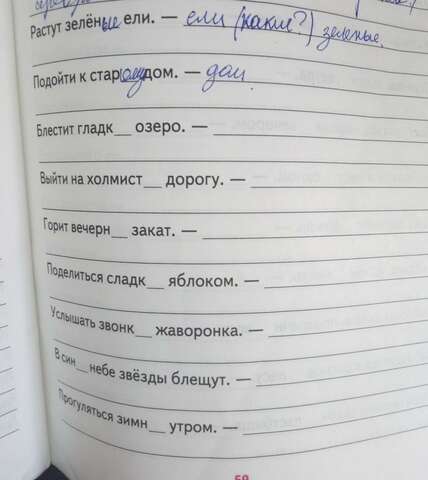 Растут зелёные ели. — ели (какие?) зеленые.
Подойти к старому дом. — дом
Блестит гладк__ озеро. —
Выйти на холмист__ дорогу. —
Горит вечерн__ закат. —
Поделиться сладк__ яблоком. —
Услышать звонк__ жаворонка. —
В син__ небе звёзды блещут. —
Прогуляться зимн__ утром. —
59